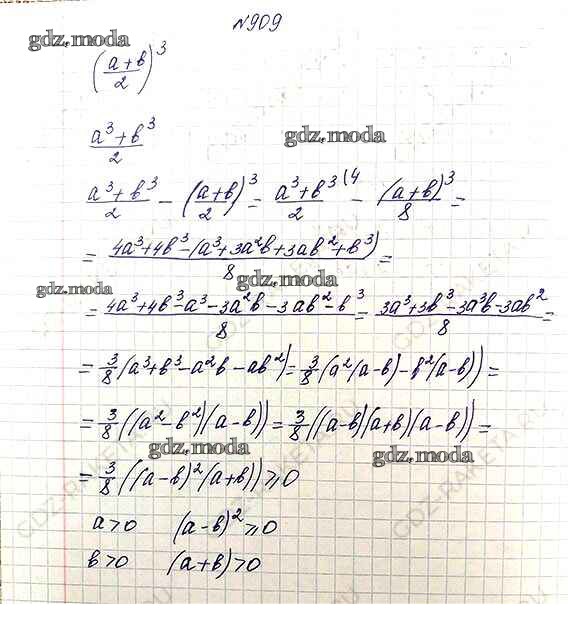 №909
gdz.moda
((a+b)/2)^3
(a^3+b^3)/2
gdz.moda
(a^3+b^3)/2 - ((a+b)/2)^3 = (a^3+b^3)/2 (4 - (a+b)^3/8 =
= (4a^3+4b^3-(a^3+3a^2b+3ab^2+b^3))/8 =
gdz.moda
gdz.moda
= (4a^3+4b^3-a^3-3a^2b-3ab^2-b^3)/8 = (3a^3+3b^3-3a^3b-3ab^2)/8 =
= 3/8(a^3+b^3-a^2b-ab^2) = 3/8(a^2(a-b)-b^2(a-b)) =
= 3/8((a^2-b^2)(a-b)) = 3/8((a-b)(a+b)(a-b)) =
gdz.moda
gdz.moda
= 3/8((a-b)^2(a+b)) ≥ 0
a>0 (a-b)^2 ≥ 0
b>0 (a+b)>0
GDZ-RAKETA.RU